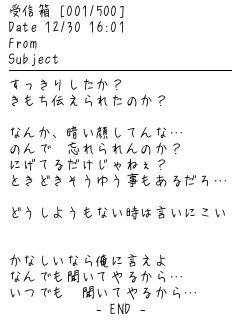 受信箱 [001/500]
Date 12/30 16:01
From
Subject
すっきりしたか？
きもち伝えられたのか？
なんか、暗い顔してんな…
のんで 忘れられんのか？
にげてるだけじゃねぇ？
ときどきそうゆう事もあるだろ…
どうしようもない時は言いにこい
かなしいなら俺に言えよ
なんでも聞いてやるから…
いつでも 聞いてやるから…
- END -